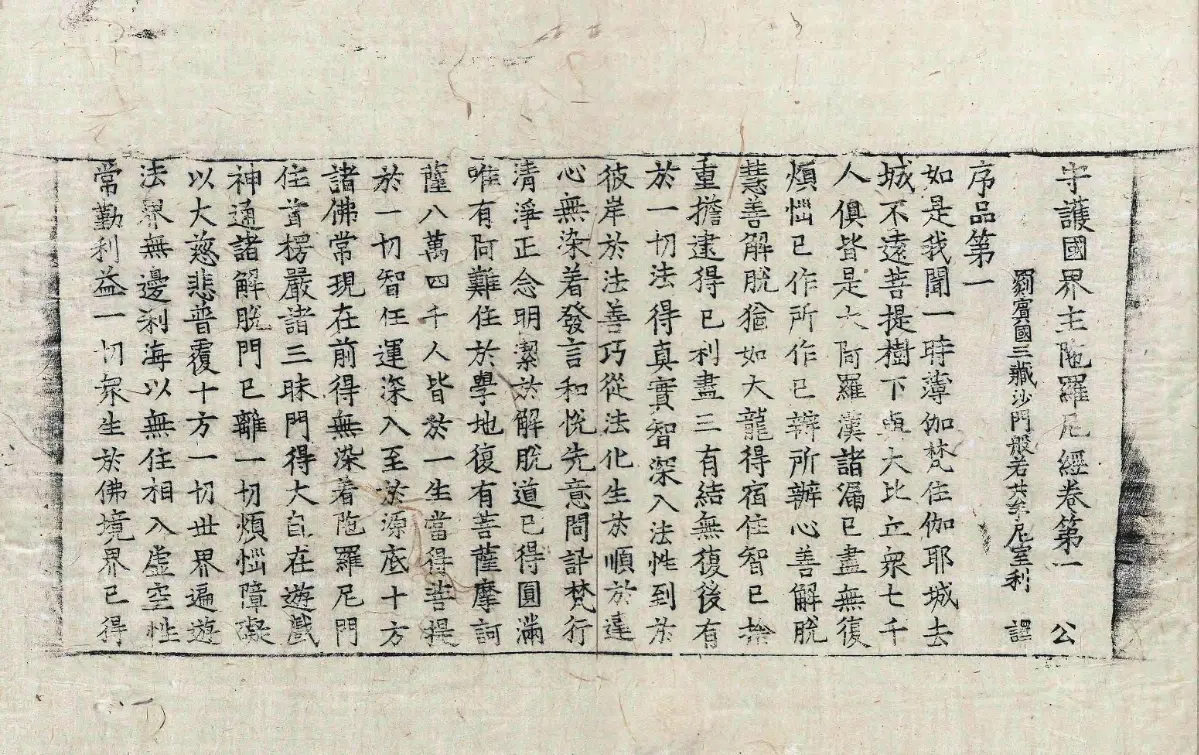 守護國界主陁羅尼經卷第一 公
罽賓國三藏沙門般若共牟尼室利 譯
序品第一
如是我聞一時薄伽梵住伽耶城去
城不遠菩提樹下與大比丘衆七千
人俱皆是大阿羅漢諸漏已盡無復
煩惱已作所作已辦所辦心善解脫
慧善解脫猶如大龍得宿住智已捨
重擔逮得已利盡三有結無復後有
於一切法得真實智深入法性到於
彼岸於法善巧從法化生於順於違
心無染着發言和悅先意問訊梵行
清淨正念明潔於解脫道已得圓滿
唯有阿難住於學地復有菩薩摩訶
薩八萬四千人皆於一生當得菩提
於一切智任運深入至於源底十方
諸佛常現在前得無染着陁羅尼門
住首楞嚴諸三昧門得大自在遊戲
神通諸解脫門已離一切煩惱障礙
以大慈悲普覆十方一切世界遍遊
法界無邊刹海以無住相入虛空性
常勤利益一切衆生於佛境界已得